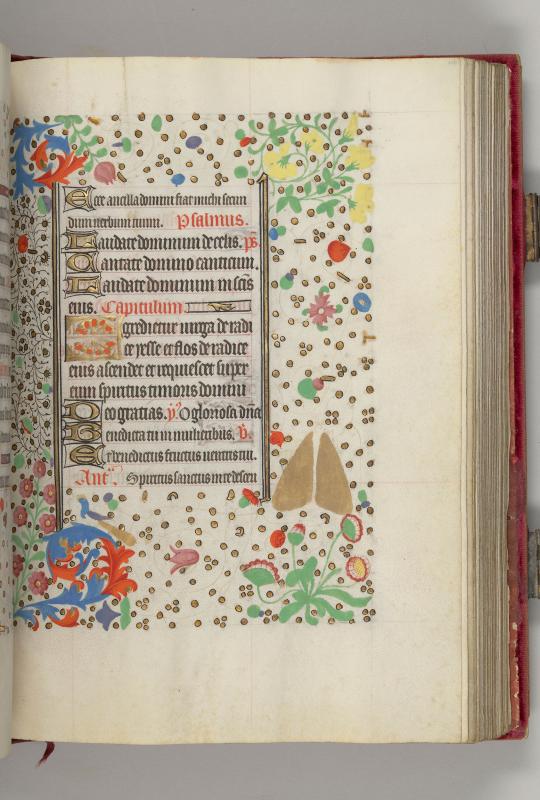 Ecce ancilla domini fiat michi secun
dum verbum tuum. Psalmus.
Laudate dominum de celis. ps.
Cantate domino canticum.
Laudate dominum in scis
eius. Capitulum
Egredietur uirga de radi
ce yesse et flos de radice
eius ascendet et requiescet super
eum spiritus timoris domini
Deo gratias. V. O gloriosa dna
Benedicta tu in mulieribus. V.
Et benedictus fructus uentris tui.
Ant. Spiritus sanctus in te descen